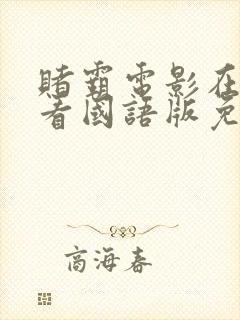 賭霸電影在
看國語版免
商海春